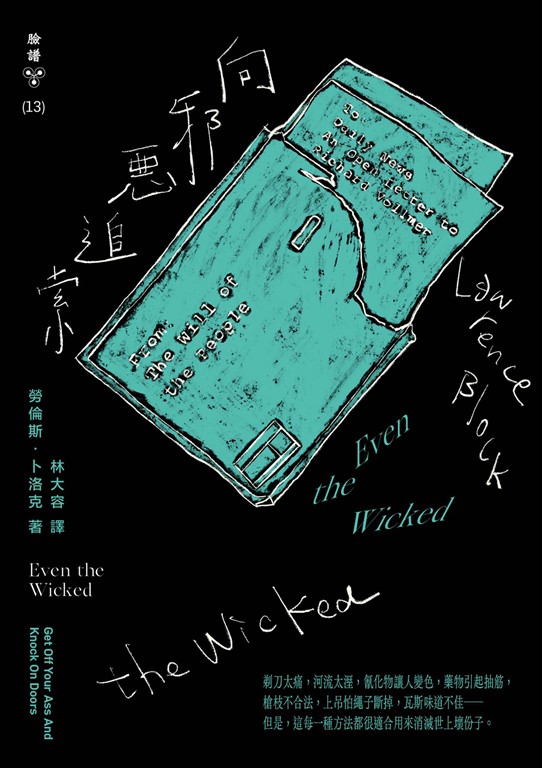 臉譜
(13)
向邪惡追索
To
Daily News
An Open Letter to
Richard Vollmer
From:
The Will of
the People
Lawrence
Block
Even
the
Wicked
勞倫斯．卜洛克 著
林大容 譯
Even the
Wicked
the Wicked
Get Off Your Ass And
Knock On Doors
剃刀太痛，河流太溼，氰化物讓人變色，藥物引起抽筋，
槍枝不合法，上吊怕繩子斷掉，瓦斯味道不佳——
但是，這每一種方法都很適合用來消滅世上壞份子。